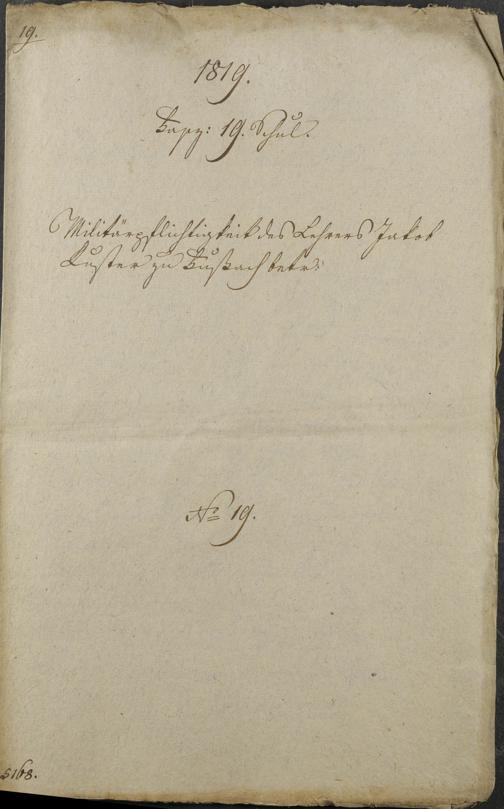 19.
1819.
19. Schul.
Militärpflichtigkeit des Lehrers Jakob
Kuster zu betr:
No 19.
5168.